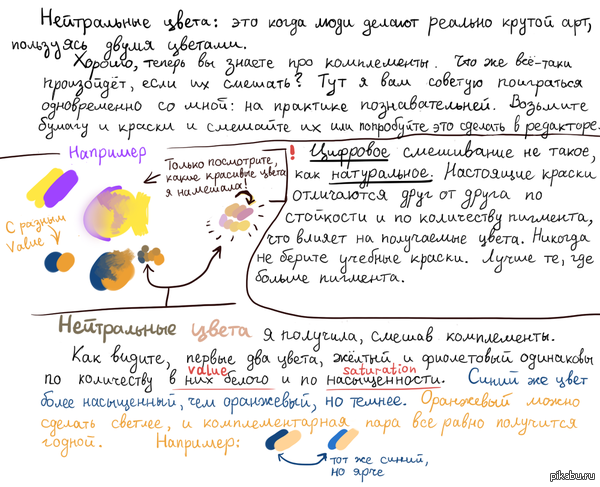 Нейтральные цвета: это когда люди делают реально крутой арт,
пользуясь двумя цветами.
Хорошо, теперь вы знаете про комплементы. Что же всё-таки
произойдёт, если их смешать? Тут я вам советую поиграться
одновременно со мной: на практике познавательней. Возьмите
бумагу и краски и смешайте их или попробуйте это сделать в редакторе.
Например
Только посмотрите,
какие красивые цвета
я намешала!
С разным
Value
! Цифровое смешивание не такое,
как натуральное. Настоящие краски
отличаются друг от друга по
стойкости и по количеству пигмента,
что влияет на получаемые цвета. Никогда
не берите учебные краски. Лучше те, где
больше пигмента.
Нейтральные цвета я получила, смешав комплементы.
Как видите, первые два цвета, жёлтый и фиолетовый одинаковы
value saturation
по количеству в них белого и по насыщенности. Синий же цвет
более насыщенный, чем оранжевый, но темнее. Оранжевый можно
сделать светлее, и комплементарная пара все равно получится
годной. Например:
тот же синий,
но ярче
pikabu.ru